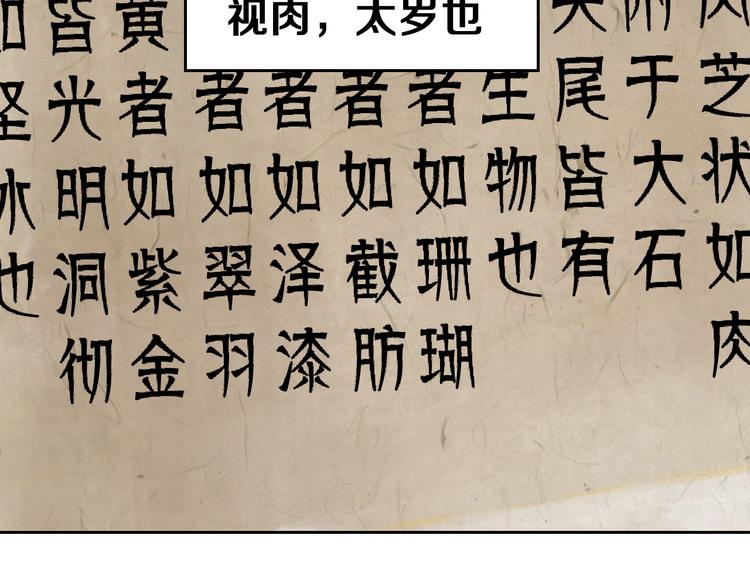 视肉，太岁也
肉芝状如肉
附于大石
头尾皆有
生物也
者如珊瑚
者如截肪
者如泽漆
者如翠羽
黄者如紫金
皆光明洞彻
如坚冰也